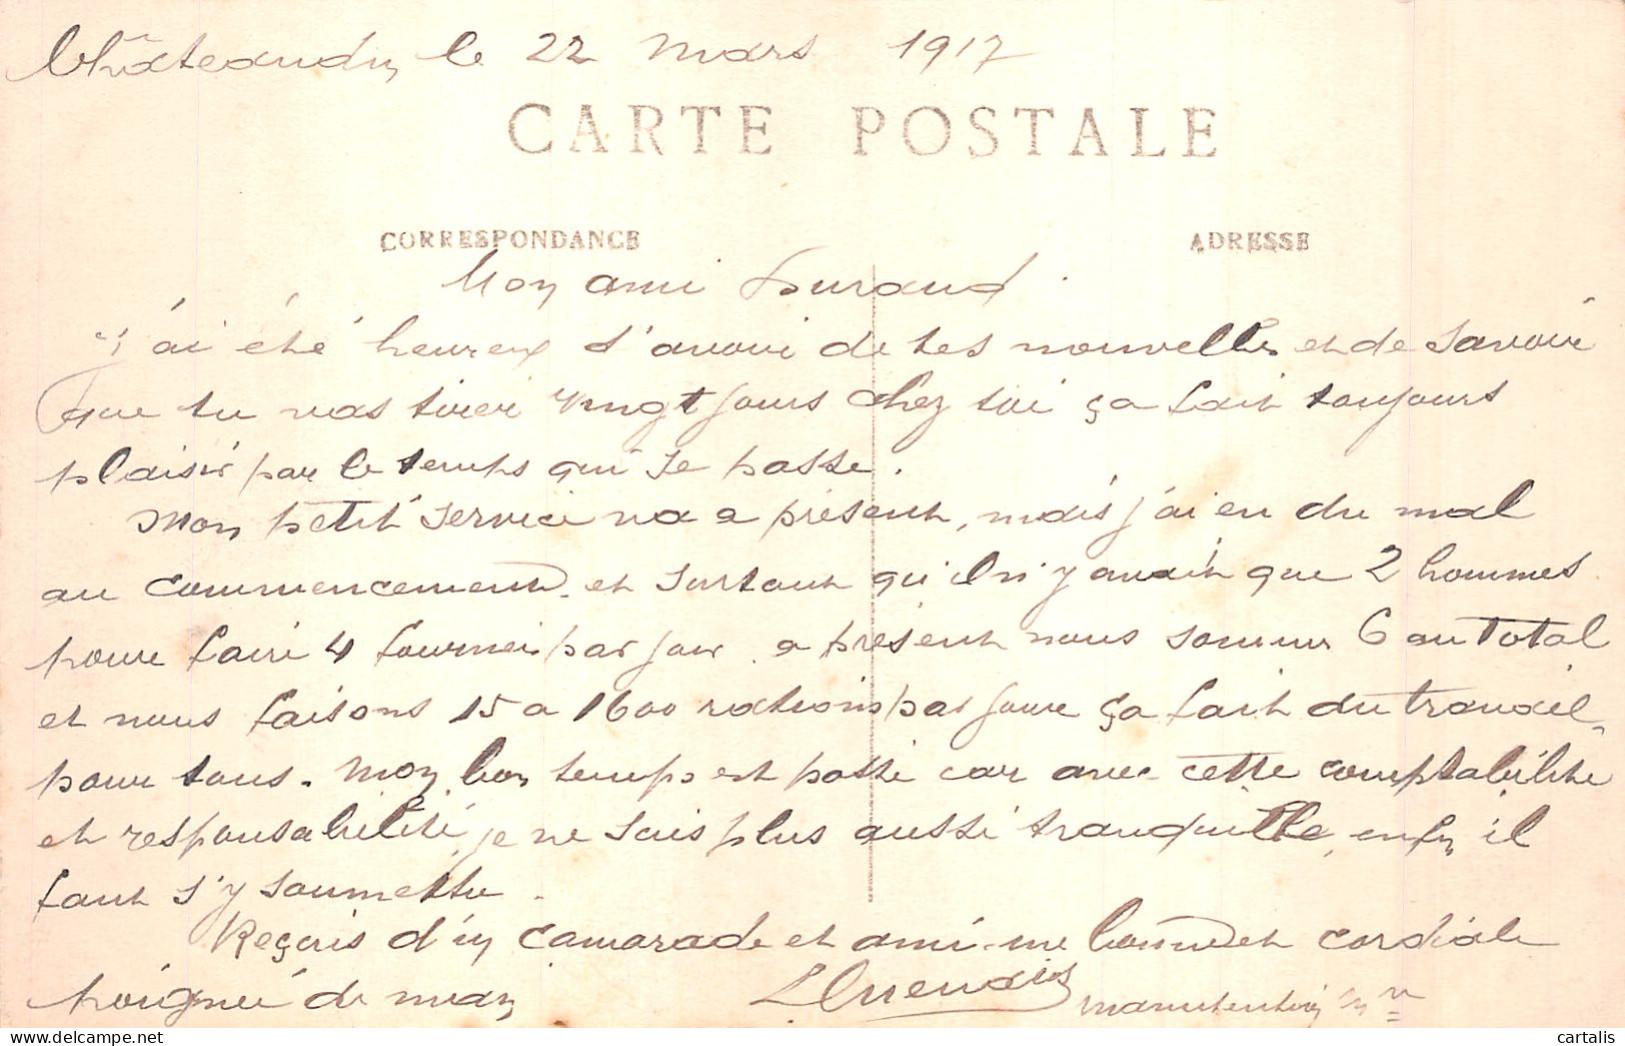 Châteaudun le 22 Mars 1917
CARTE POSTALE
CORRESPONDANCE
ADRESSE
Mon ami Durand
j'ai été heureux d'avoir de tes nouvelles et de savoir
que tu vas tirer vingt jours chez toi ça fait toujours
plaisir par le temps qui se passe.
Mon petit service va a présent, mais j'ai eu du mal
au commencement et surtout qu'il n'y avait que 2 hommes
pour faire 4 fournées par jour. a présent nous sommes 6 au Total
et nous faisons 15 a 1600 rations par jour ça fait du travail
pour tous. Mon bon temps est passé car avec cette comptabilité
et responsabilité, je ne suis plus aussi tranquille, enfin il
faut s'y soumettre.
Reçois d'un camarade et ami une bonne et cordiale
poignée de main
manutention
cartalis